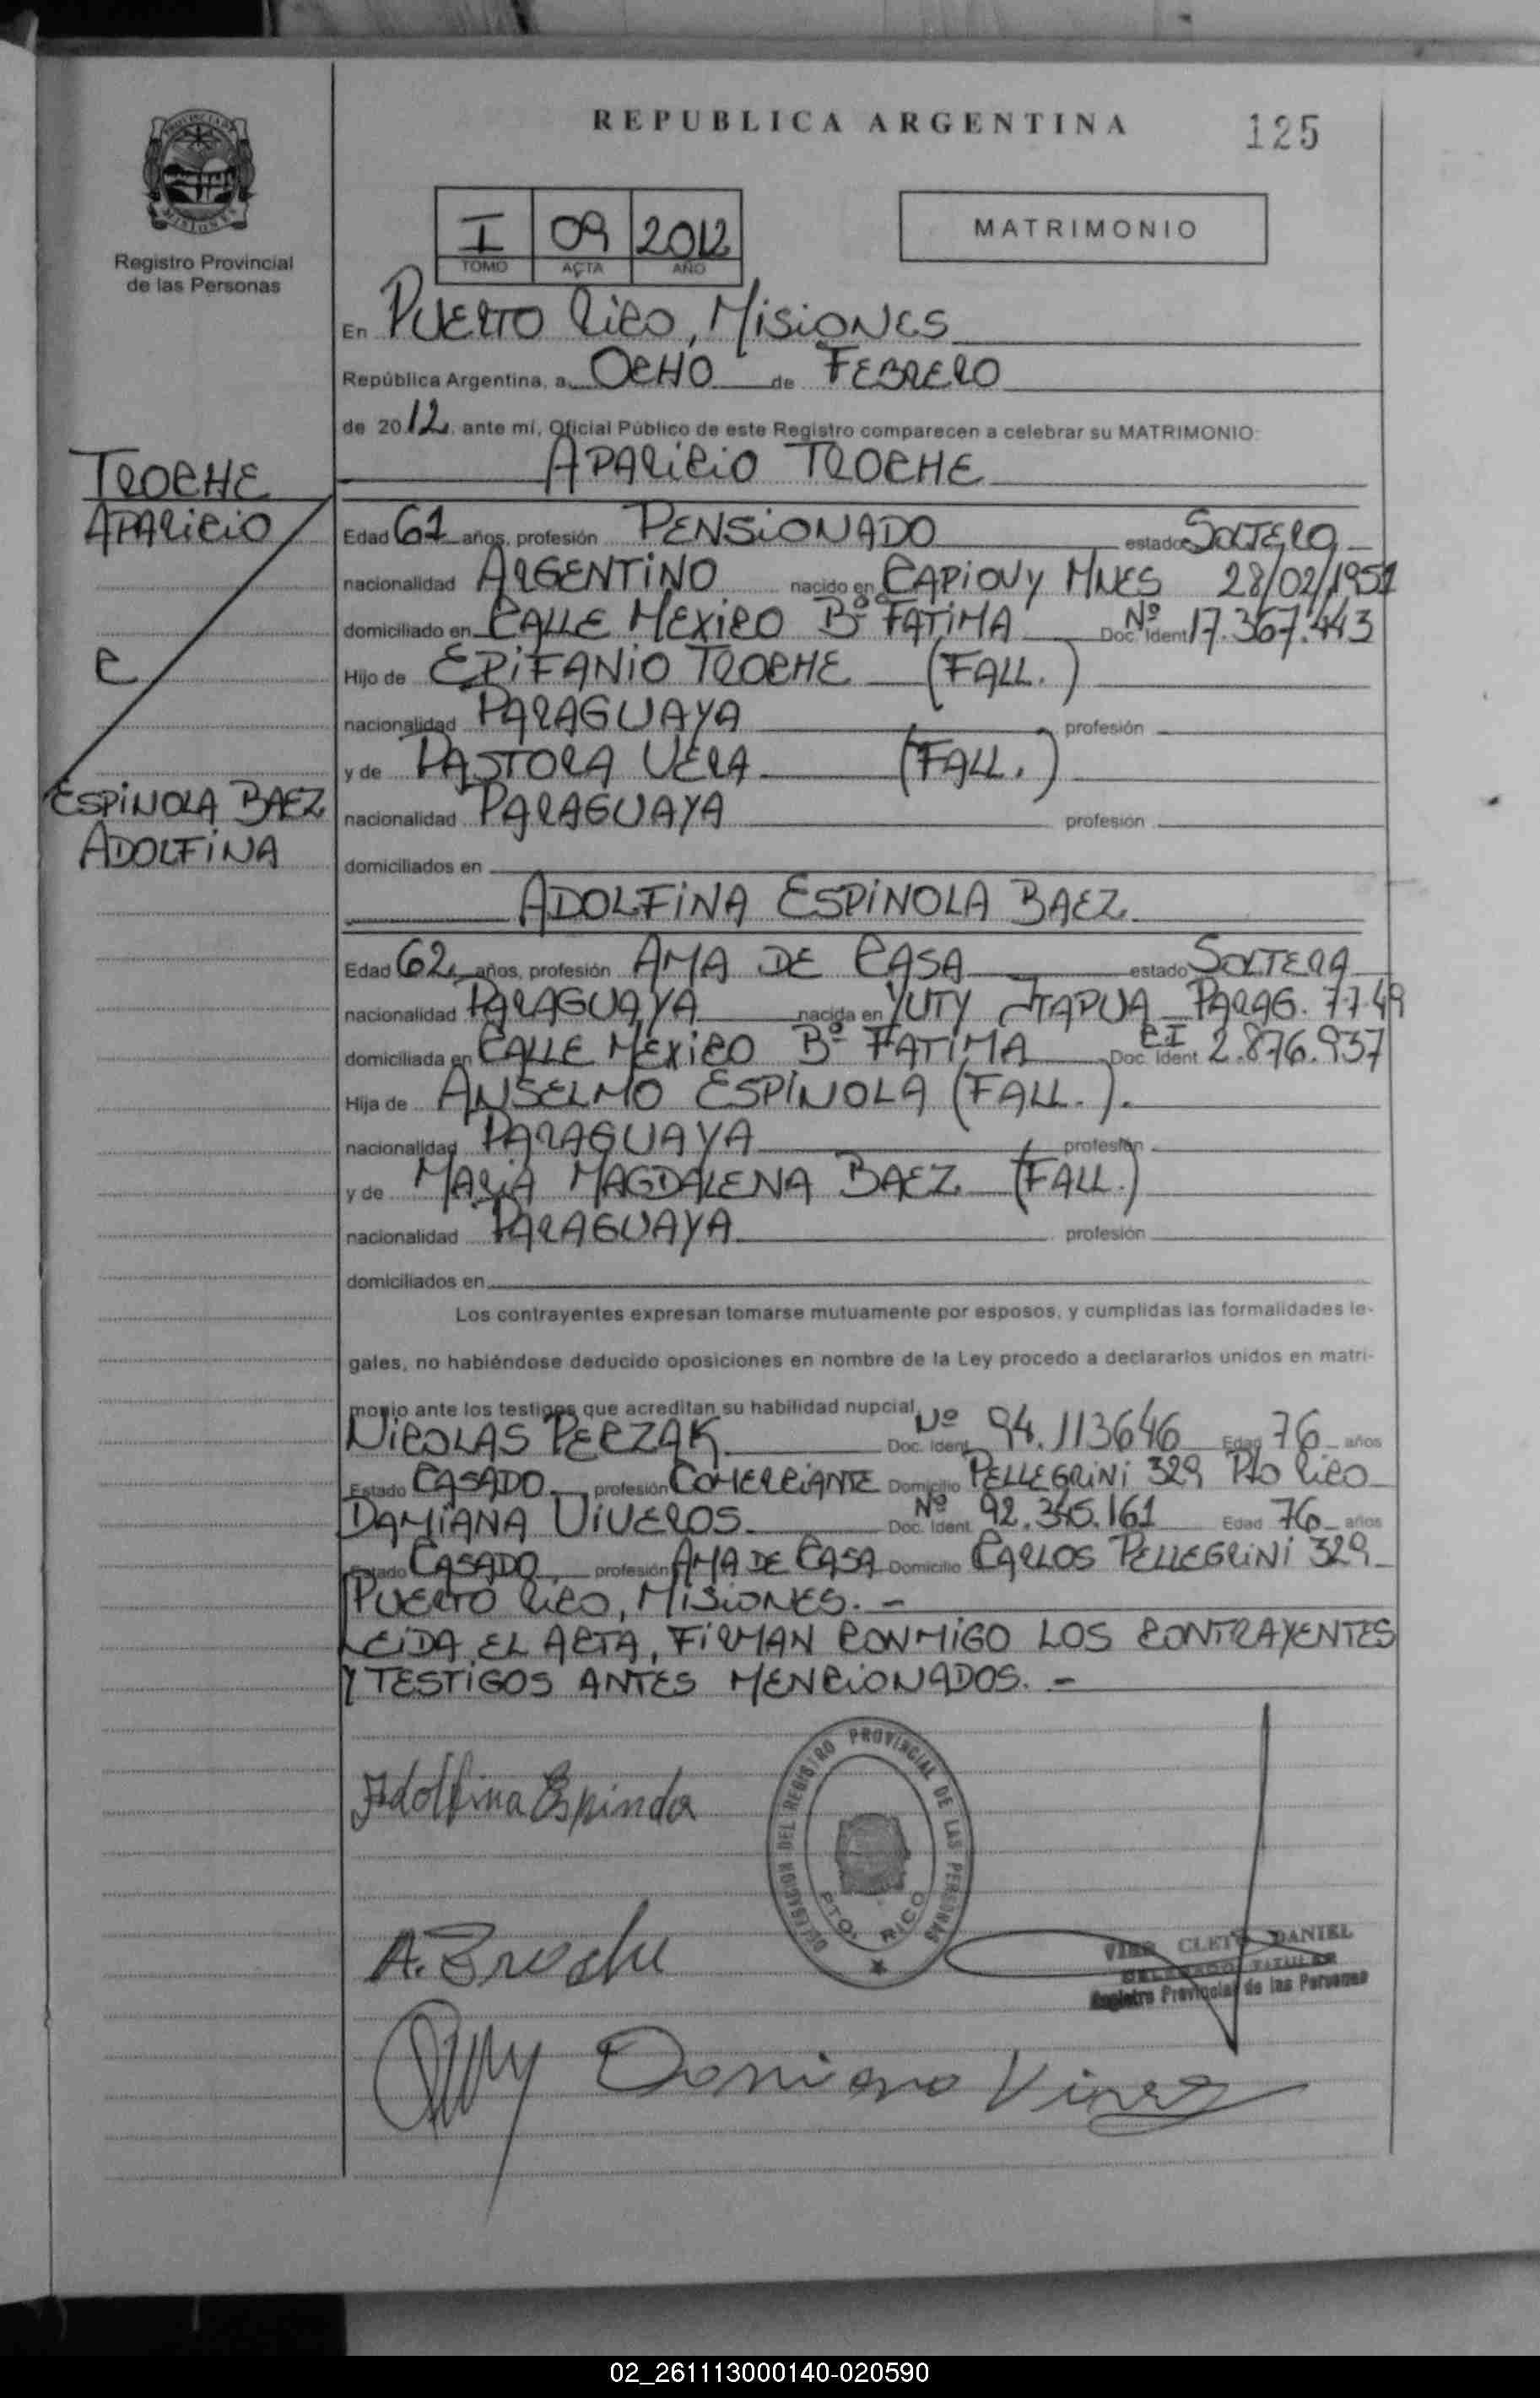 REPUBLICA ARGENTINA
125
PROVINCIA DE
MISIONES
Registro Provincial
de las Personas
I 09 2012
TOMO ACTA AÑO
MATRIMONIO
En PUERTO RICO, MISIONES
República Argentina, a OCHO de FEBRERO
de 2012 ante mí, Oficial Público de este Registro comparecen a celebrar su MATRIMONIO:
APARICIO TROCHE
TROCHE
APARICIO
C
ESPINOLA BAEZ
ADOLFINA
Edad 61 años, profesión PENSIONADO estado SOLTERO
nacionalidad ARGENTINO nacido en CAPIOVY MNES 28/02/1951
domiciliado en CALLE MEXICO Bº FATIMA Doc. Ident Nº 17.367.443
Hijo de EPIFANIO TROCHE (FALL.)
nacionalidad PARAGUAYA profesión
y de PASTORA VERA (FALL.)
nacionalidad PARAGUAYA profesión
domiciliados en
ADOLFINA ESPINOLA BAEZ
Edad 62 años, profesión AMA DE CASA estado SOLTERA
nacionalidad PARAGUAYA nacida en YUTY ITAPUA PARAG. 7.7.49
domiciliada en CALLE MEXICO Bº FATIMA Doc. Ident C.I 2.876.937
Hija de ANSELMO ESPINOLA (FALL.).
nacionalidad PARAGUAYA profesión
y de MARIA MAGDALENA BAEZ (FALL.)
nacionalidad PARAGUAYA profesión
domiciliados en
Los contrayentes expresan tomarse mutuamente por esposos, y cumplidas las formalidades le-
gales, no habiéndose deducido oposiciones en nombre de la Ley procedo a declararlos unidos en matri-
monio ante los testigos que acreditan su habilidad nupcial
NICOLAS PERZAK Doc. Ident Nº 94.113646 Edad 76 años
Estado CASADO profesión COMERCIANTE Domicilio PELLEGRINI 329 Pto RICO
DAMIANA VIVEROS Doc. Ident. Nº 92.345.161 Edad 76 años
Estado CASADO, profesión AMA DE CASA Domicilio CARLOS PELLEGRINI 329
PUERTO RICO, MISIONES. -
LEIDA EL ACTA, FIRMAN CONMIGO LOS CONTRAYENTES
Y TESTIGOS ANTES MENCIONADOS. -
Adolfina Espinola
DELEGACION DEL REGISTRO PROVINCIAL DE LAS PERSONAS
PTO. RICO
A. Troche
CLETO DANIEL
DELEGADO TITULAR
Registro Provincial de las Personas
Damiana
02_261113000140-020590